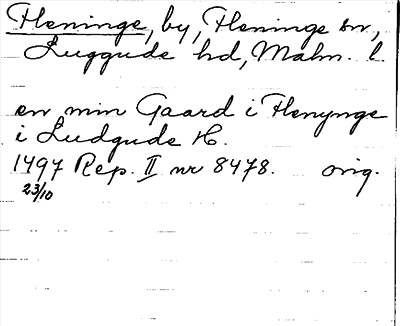 Fleninge, by, Fleninge sn,
Luggude hd, Malm. l
en min Gaard i Flenynge
i Ludgude H.
1497 Rep. II nr 8478. orig.
23/10